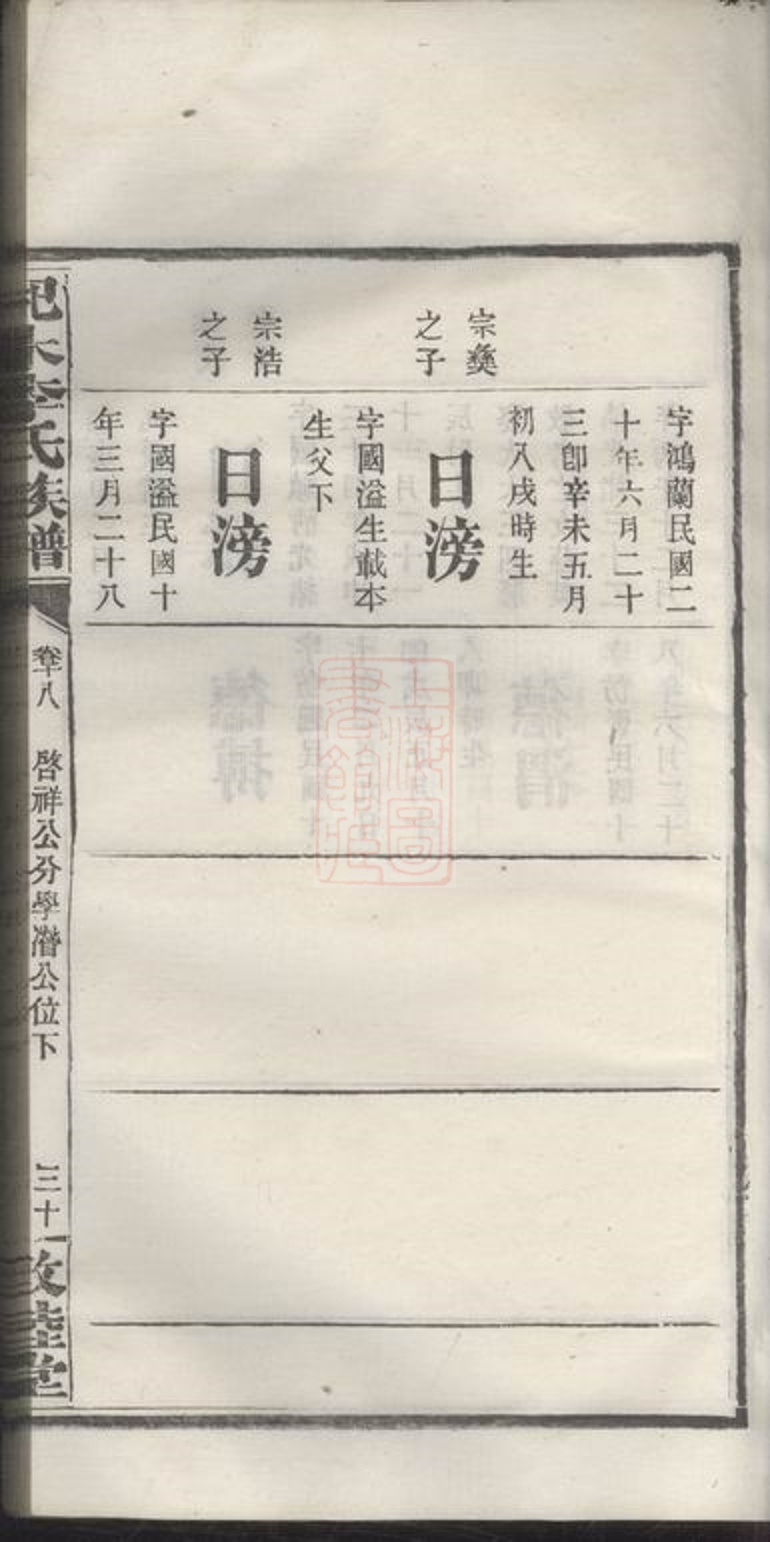 字鴻蘭民國二
十年六月二十
三卽辛未五月
初入戌時生
宗彝
之子
日滂
字國溢生載本
生父下
宗浩
之子
日滂
字國溢民國十
年三月二十八
氏族譜
卷十八
啓祥公分學濳公位下
三十一